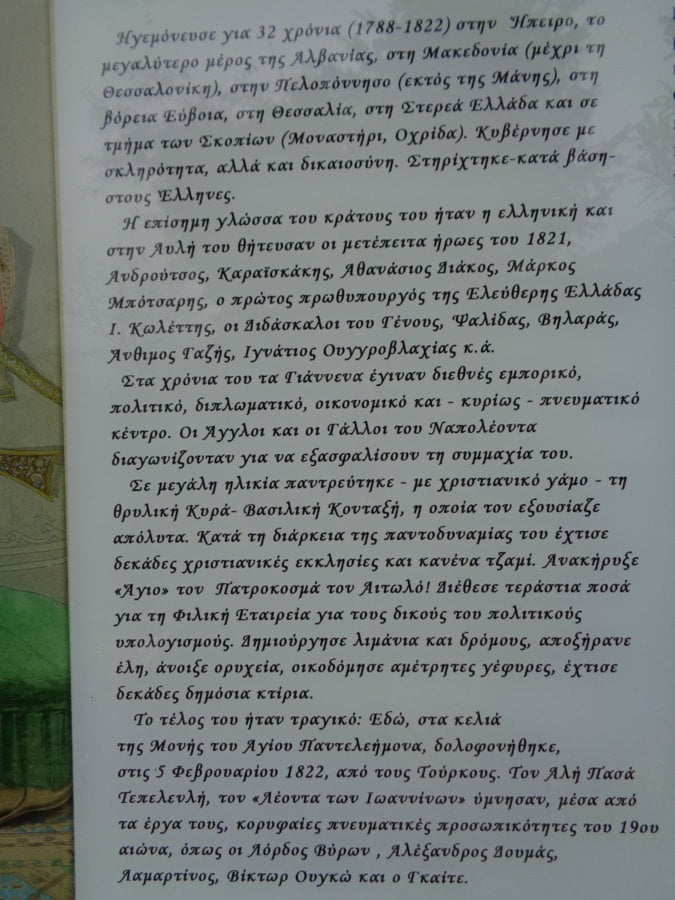 Ηγεμόνευσε για 32 χρόνια (1788-1822) στην Ήπειρο, το
μεγαλύτερο μέρος της Αλβανίας, στη Μακεδονία (μέχρι τη
Θεσσαλονίκη), στην Πελοπόννησο (εκτός της Μάνης), στη
βόρεια Εύβοια, στη Θεσσαλία, στη Στερεά Ελλάδα και σε
τμήμα των Σκοπίων (Μοναστήρι, Οχρίδα). Κυβέρνησε με
σκληρότητα, αλλά και δικαιοσύνη. Στηρίχτηκε-κατά βάση-
στους Έλληνες.
Η επίσημη γλώσσα του κράτους του ήταν η ελληνική και
στην Αυλή του θήτευσαν οι μετέπειτα ήρωες του 1821,
Ανδρούτσος, Καραϊσκάκης, Αθανάσιος Διάκος, Μάρκος
Μπότσαρης, ο πρώτος πρωθυπουργός της Ελεύθερης Ελλάδας
Ι. Κωλέττης, οι Διδάσκαλοι του Γένους, Ψαλίδας, Βηλαράς,
Άνθιμος Γαζής, Ιγνάτιος Ουγγροβλαχίας κ.ά.
Στα χρόνια του τα Γιάννενα έγιναν διεθνές εμπορικό,
πολιτικό, διπλωματικό, οικονομικό και - κυρίως - πνευματικό
κέντρο. Οι Άγγλοι και οι Γάλλοι του Ναπολέοντα
διαγωνίζονταν για να εξασφαλίσουν τη συμμαχία του.
Σε μεγάλη ηλικία παντρεύτηκε - με χριστιανικό γάμο - τη
θρυλική Κυρά- Βασιλική Κονταξή, η οποία τον εξουσίαζε
απόλυτα. Κατά τη διάρκεια της παντοδυναμίας του έχτισε
δεκάδες χριστιανικές εκκλησίες και κανένα τζαμί. Ανακήρυξε
«Άγιο» τον Πατροκοσμά τον Αιτωλό! Διέθεσε τεράστια ποσά
για τη Φιλική Εταιρεία για τους δικούς του πολιτικούς
υπολογισμούς. Δημιούργησε λιμάνια και δρόμους, αποξήρανε
έλη, άνοιξε ορυχεία, οικοδόμησε αμέτρητες γέφυρες, έχτισε
δεκάδες δημόσια κτίρια.
Το τέλος του ήταν τραγικό: Εδώ, στα κελιά
της Μονής του Αγίου Παντελεήμονα, δολοφονήθηκε,
στις 5 Φεβρουαρίου 1822, από τους Τούρκους. Τον Αλή Πασά
Τεπελενλή, τον «Λέοντα των Ιωαννίνων» ύμνησαν, μέσα από
τα έργα τους, κορυφαίες πνευματικές προσωπικότητες του 19ου
αιώνα, όπως οι Λόρδος Βύρων , Αλέξανδρος Δουμάς,
Λαμαρτίνος, Βίκτωρ Ουγκώ και ο Γκαίτε.